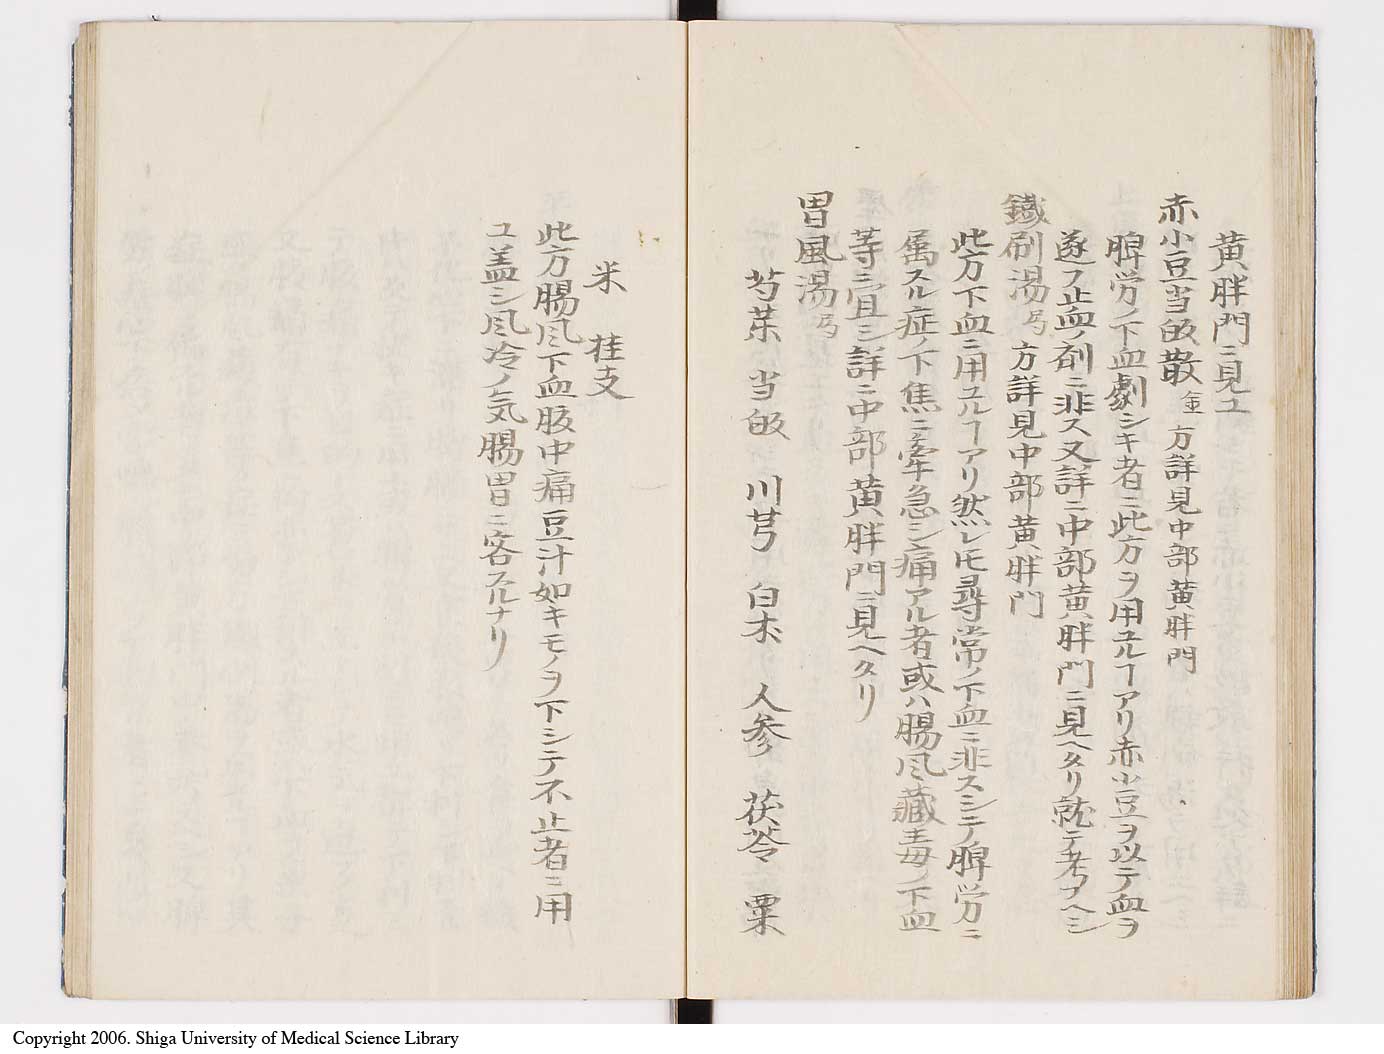 黄胖門ニ見ユ
赤小豆当皈散 金 方詳見中部黄胖門
脾労ノ下血劇シキ者ニ此方ヲ用ユルヿアリ赤小豆ヲ以テ血ヲ
遂フ止血ノ剤ニ非ス又詳ニ中部黄胖門ニ見ヘタリ就テ考フヘシ
鐵刷湯 方詳見中部黄胖門
此方下血ニ用ユルヿアリ然レ𪜈尋常ノ下血ニ非スシテ脾労ニ
属スル症ノ下焦ニ牽急シ痛アル者或ハ腸風藏毒ノ下血
等ニ宜シ詳ニ中部黄胖門ニ見ヘタリ
胃風湯
芍薬 当皈 川芎 白朮 人参 茯苓 粟
米 桂支
此方腸風下血腹中痛豆汁如キモノヲ下シテ不止者ニ用
ユ盖シ風冷ノ気腸胃ニ客スルナリ
Copyright 2006. Shiga University of Medical Science Library